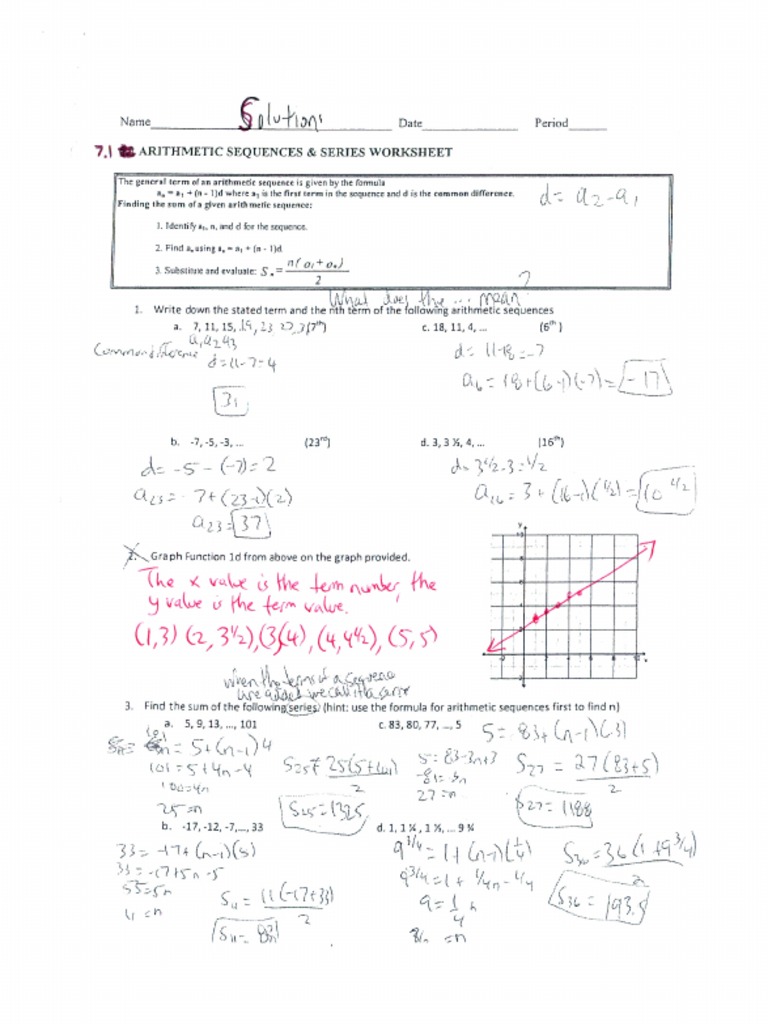 Name Solutions Date Period
7.1 ARITHMETIC SEQUENCES & SERIES WORKSHEET
The general term of an arithmetic sequence is given by the formula
aₙ = a₁ + (n - 1)d where a₁ is the first term in the sequence and d is the common difference.
d = a₂-a₁
Finding the sum of a given arithmetic sequence:
1. Identify a₁, n, and d for the sequence.
2. Find aₙ using aₙ = a₁ + (n - 1)d
3. Substitute and evaluate: Sₙ = n(a₁ + aₙ) / 2
What does the ... mean ?
1. Write down the stated term and the nth term of the following arithmetic sequences
a. 7, 11, 15, 19, 23 (7th) c. 18, 11, 4, ... (6th)
a₁ a₂ a₃
Common difference d = 11-7=4
d= 11-18=-7
a₆ = 18+(6-1)(-7)= -17
31
b. -7, -5, -3, ... (23rd) d. 3, 3 ½, 4, ... (16th)
d= -5 - (-7)= 2
d= 3 1/2-3=1/2
a₂₃= -7+(23-1)(2)
a₁₆= 3+(16-1)(1/2)= 10 1/2
a₂₃= 37
2. Graph Function 1d from above on the graph provided.
The x value is the term number, the
y value is the term value.
(1,3) (2, 3 1/2), (3,4), (4,4 1/2), (5,5)
y
x
when the terms of a sequence
are added we call it a series
3. Find the sum of the following series (hint: use the formula for arithmetic sequences first to find n)
a. 5, 9, 13, ..., 101 c. 83, 80, 77, ..., 5
101 = 5+(n-1)4
101 = 5+4n-4
100=4n
25=n
S₂₅= 25(5+101) / 2
S₂₅=1325
5= 83+(n-1)(-3)
5=83-3n+3
-81=-3n
27=n
S₂₇ = 27(83+5) / 2
S₂₇=1188
b. -17, -12, -7,..., 33 d. 1, 1 ¼, 1 ½, ... 9 ¾
33= -17+(n-1)(5)
33= -17+5n-5
55=5n
11=n
S₁₁= 11(-17+33) / 2
9 3/4=1+(n-1)(1/4)
9 3/4=1+ 1/4n-1/4
9=1/4 n
=n
S₃₆=36(1+9 3/4) / 2
S₃₆=193.5